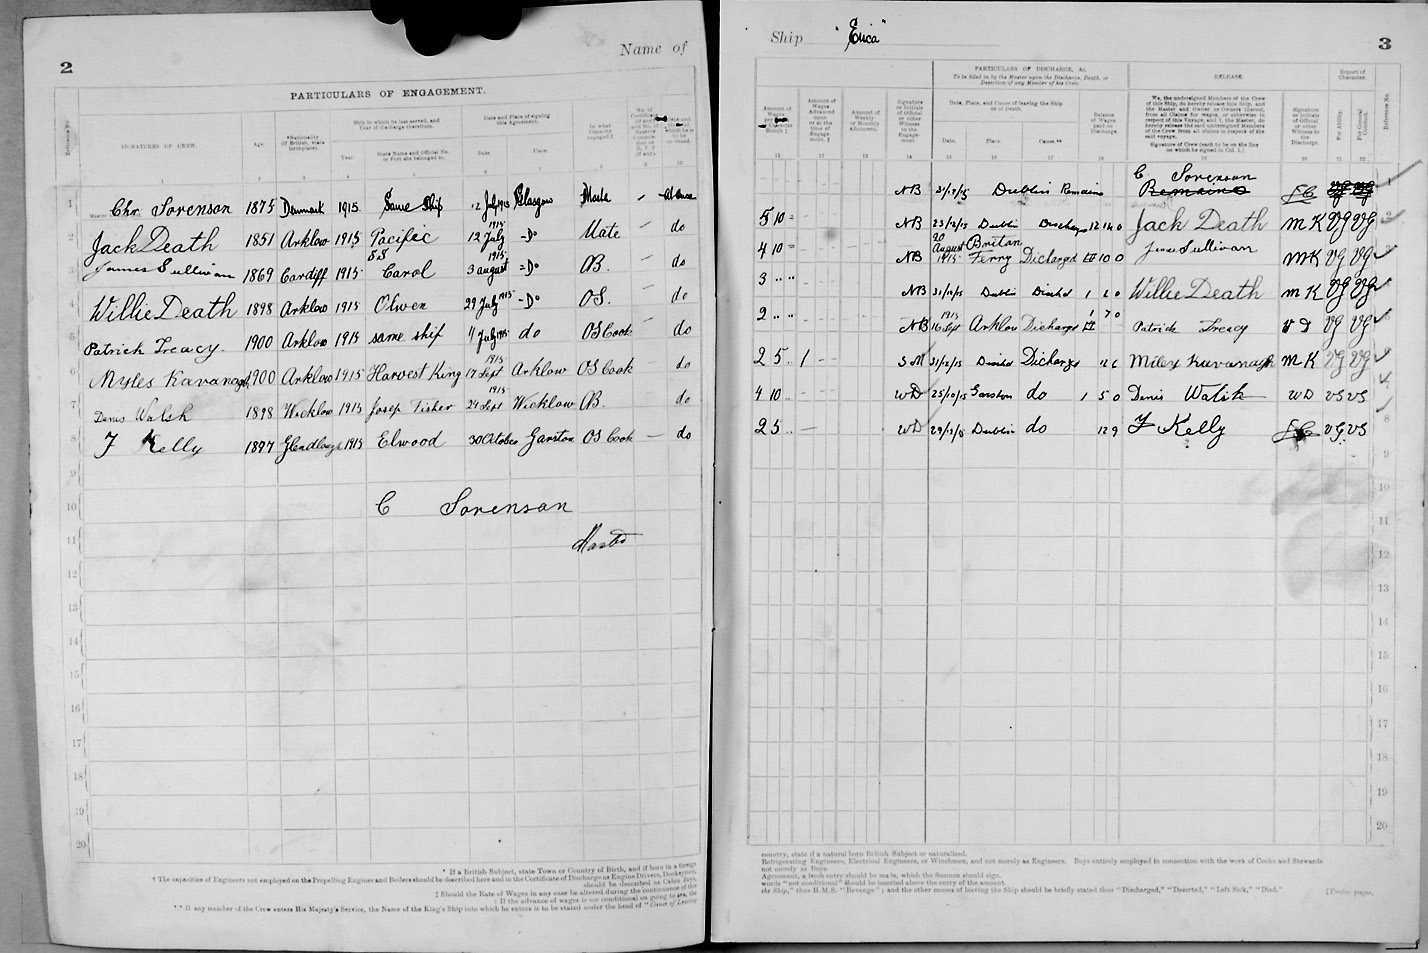 2
Name of
PARTICULARS OF ENGAGEMENT.
Reference No.
SIGNATURES OF CREW.
Age.
*Nationality (If British, state birthplace).
Ship in which he last served, and Year of discharge therefrom.
Year.
State Name and Official No. or Port she belonged to.
Date and Place of signing this Agreement.
Date.
Place.
In what Capacity engaged.
1 2 3 4 5 6 7 8 9 10
1 Chr. Sorenson 1875 Denmark 1915 Same Ship 12 July 1915 Glasgow Master - At once
2 Jack Death 1851 Arklow 1915 Pacific 12 July 1915 -Do Mate - do
3 James Sullivan 1869 Cardiff 1915 SS Carol 3 august 1915 -Do AB. - do
4 Willie Death 1898 Arklow 1915 Olwen 29 July 1915 -Do OS. - do
5 Patrick Treacy. 1900 Arklow 1915 same ship 11 July 1915 do OS Cook - do
6 Myles Kavanagh 1900 Arklow 1915 Harvest King 17 Sept 1915 Arklow OS Cook do
7 Denis Walsh 1898 Wicklow 1915 Josep Fisher 24 Sept 1915 Wicklow AB. do
8 F Kelly 1897 1915 Elwood 30 October Garston OS Cook - do
9
10 C Sorenson
11 Master
12
13
14
15
16
17
18
19
20
* If a British Subject, state Town or Country of Birth, and if born in a foreign
† The capacities of Engineers not employed on the Propelling Engines and Boilers should be described here and in the Certificate of Discharge as Engine Drivers, Donkeymen,
should be described as Cabin Boys.
‡ Should the Rate of Wages in any case be altered during the continuance of this
§ If the advance of wages is not conditional on going to sea, the
** If any member of the Crew enters His Majesty's Service, the Name of the King's Ship into which he enters is to be stated under the head of "Cause of Leaving
Ship "Erica"
3
PARTICULARS OF DISCHARGE, &c.
To be filled in by the Master upon the Discharge, Death, or Desertion of any Member of his Crew.
RELEASE.
Report of Character.
Amount of Wages Advanced upon or at the time of Engagement.
Amount of Weekly or Monthly Allotment.
Signature or Initials of Official or other Witness to the Engagement
Date, Place, and Cause of leaving the Ship or of Death.
Date.
Place.
Cause.**
Balance of Wages paid on Discharge.
We, the undersigned Members of the Crew of this Ship, do hereby release this Ship, and the Master and Owner or Owners thereof, from all Claims for wages, or otherwise in respect of this Voyage, and I, the Master, do hereby release the said undersigned Members of the Crew from all claims in respect of the said voyage.
Signature of Crew (each to be on the line on which he signed in Col. 1.)
Signature or Initials of Official or other Witness to the Discharge.
For Ability.
For General Conduct.
Reference No.
11 12 13 14 15 16 17 18 19 20 21 22
NB 31/12/15 Dublin Remains C Sorenson Remains VG VG 1
5 10 NB 23/12/15 Dublin Discharge 12 14 0 Jack Death M K VG VG 2
4 10 NB 20 August 1915 Britan Ferry Dicharged 10 0 James Sullivan MK VG VG
3 " " NB 31/12/15 Dublin 1 2 0 Willie Death M K VG VG
2 " " NB 1915 16 Sept Arklow Dicharge 1 7 0 Patrick Treacy VG VG
2 5 1 - - S M 31/12/15 Dicharge 12 6 Miley Kavanagh M K VG VG
4 10 WD 25/10/15 Garston do 1 5 0 Denis Walsh WD VG VG
2 5 - WD Dublin do 12 9 F Kelly VG VG 8
9
10
11
12
13
14
15
16
17
18
19
20
country, state if a natural born British Subject or naturalised.
Refrigerating Engineers, Electrical Engineers, or Winchmen, and not merely as Engineers. Boys entirely employed in connection with the work of Cooks and Stewards
not merely as Boys.
Agreement, a fresh entry should be made, which the Seaman should sign.
words "not conditional" should be inserted above the entry of the amount.
the Ship," thus H.M.S. "Revenge"; and the other causes of leaving the Ship should be briefly stated thus "Discharged," "Deserted," "Left Sick," "Died."
[Twelve pages.